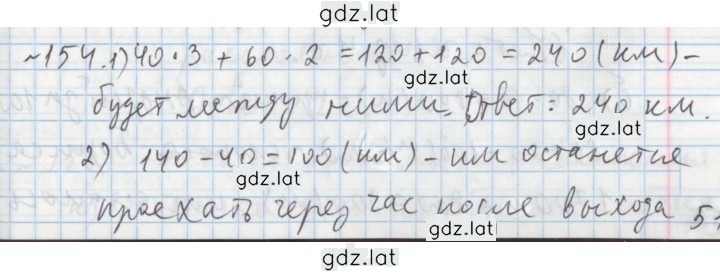 gdz.lat
~154.1) 40·3 + 60·2 = 120 + 120 = 240 (км) –
gdz.lat
будет между ними. Ответ: 240 км.
gdz.lat
2) 140 – 40 = 100 (км) – им останется
gdz.lat
проехать через час после выхода 5
gdz.lat
gdz.lat